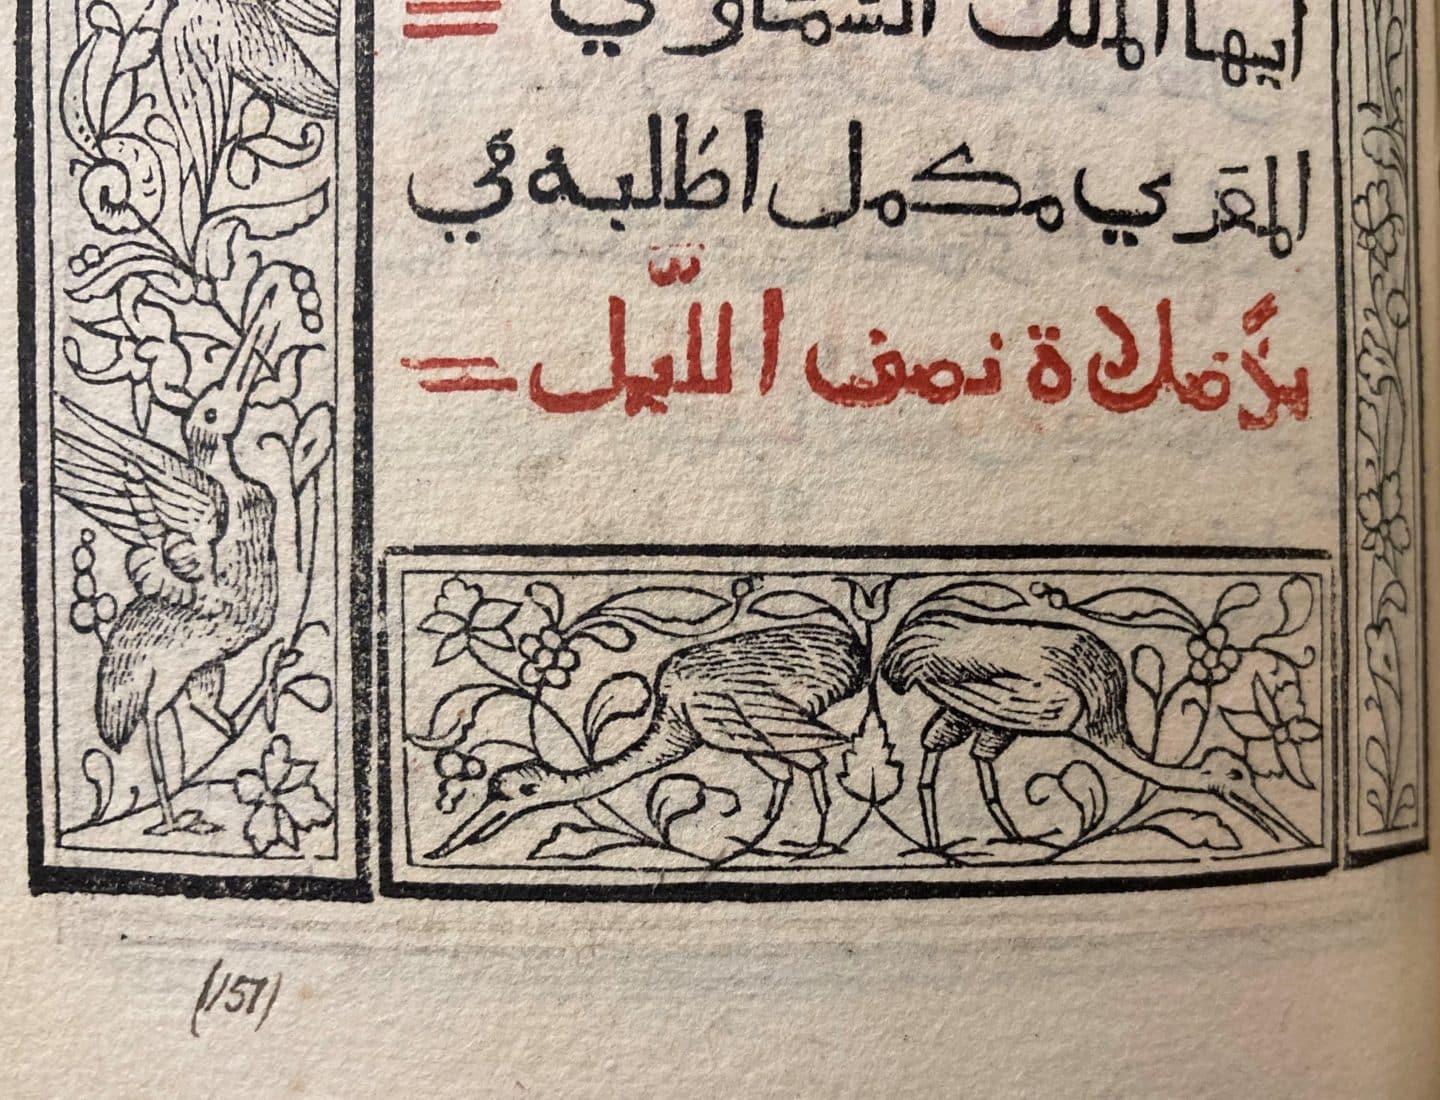 ايها الملك السماوي =
المعَزي مكمل اطلبه في
صلاة نصف الليّل =
(157)